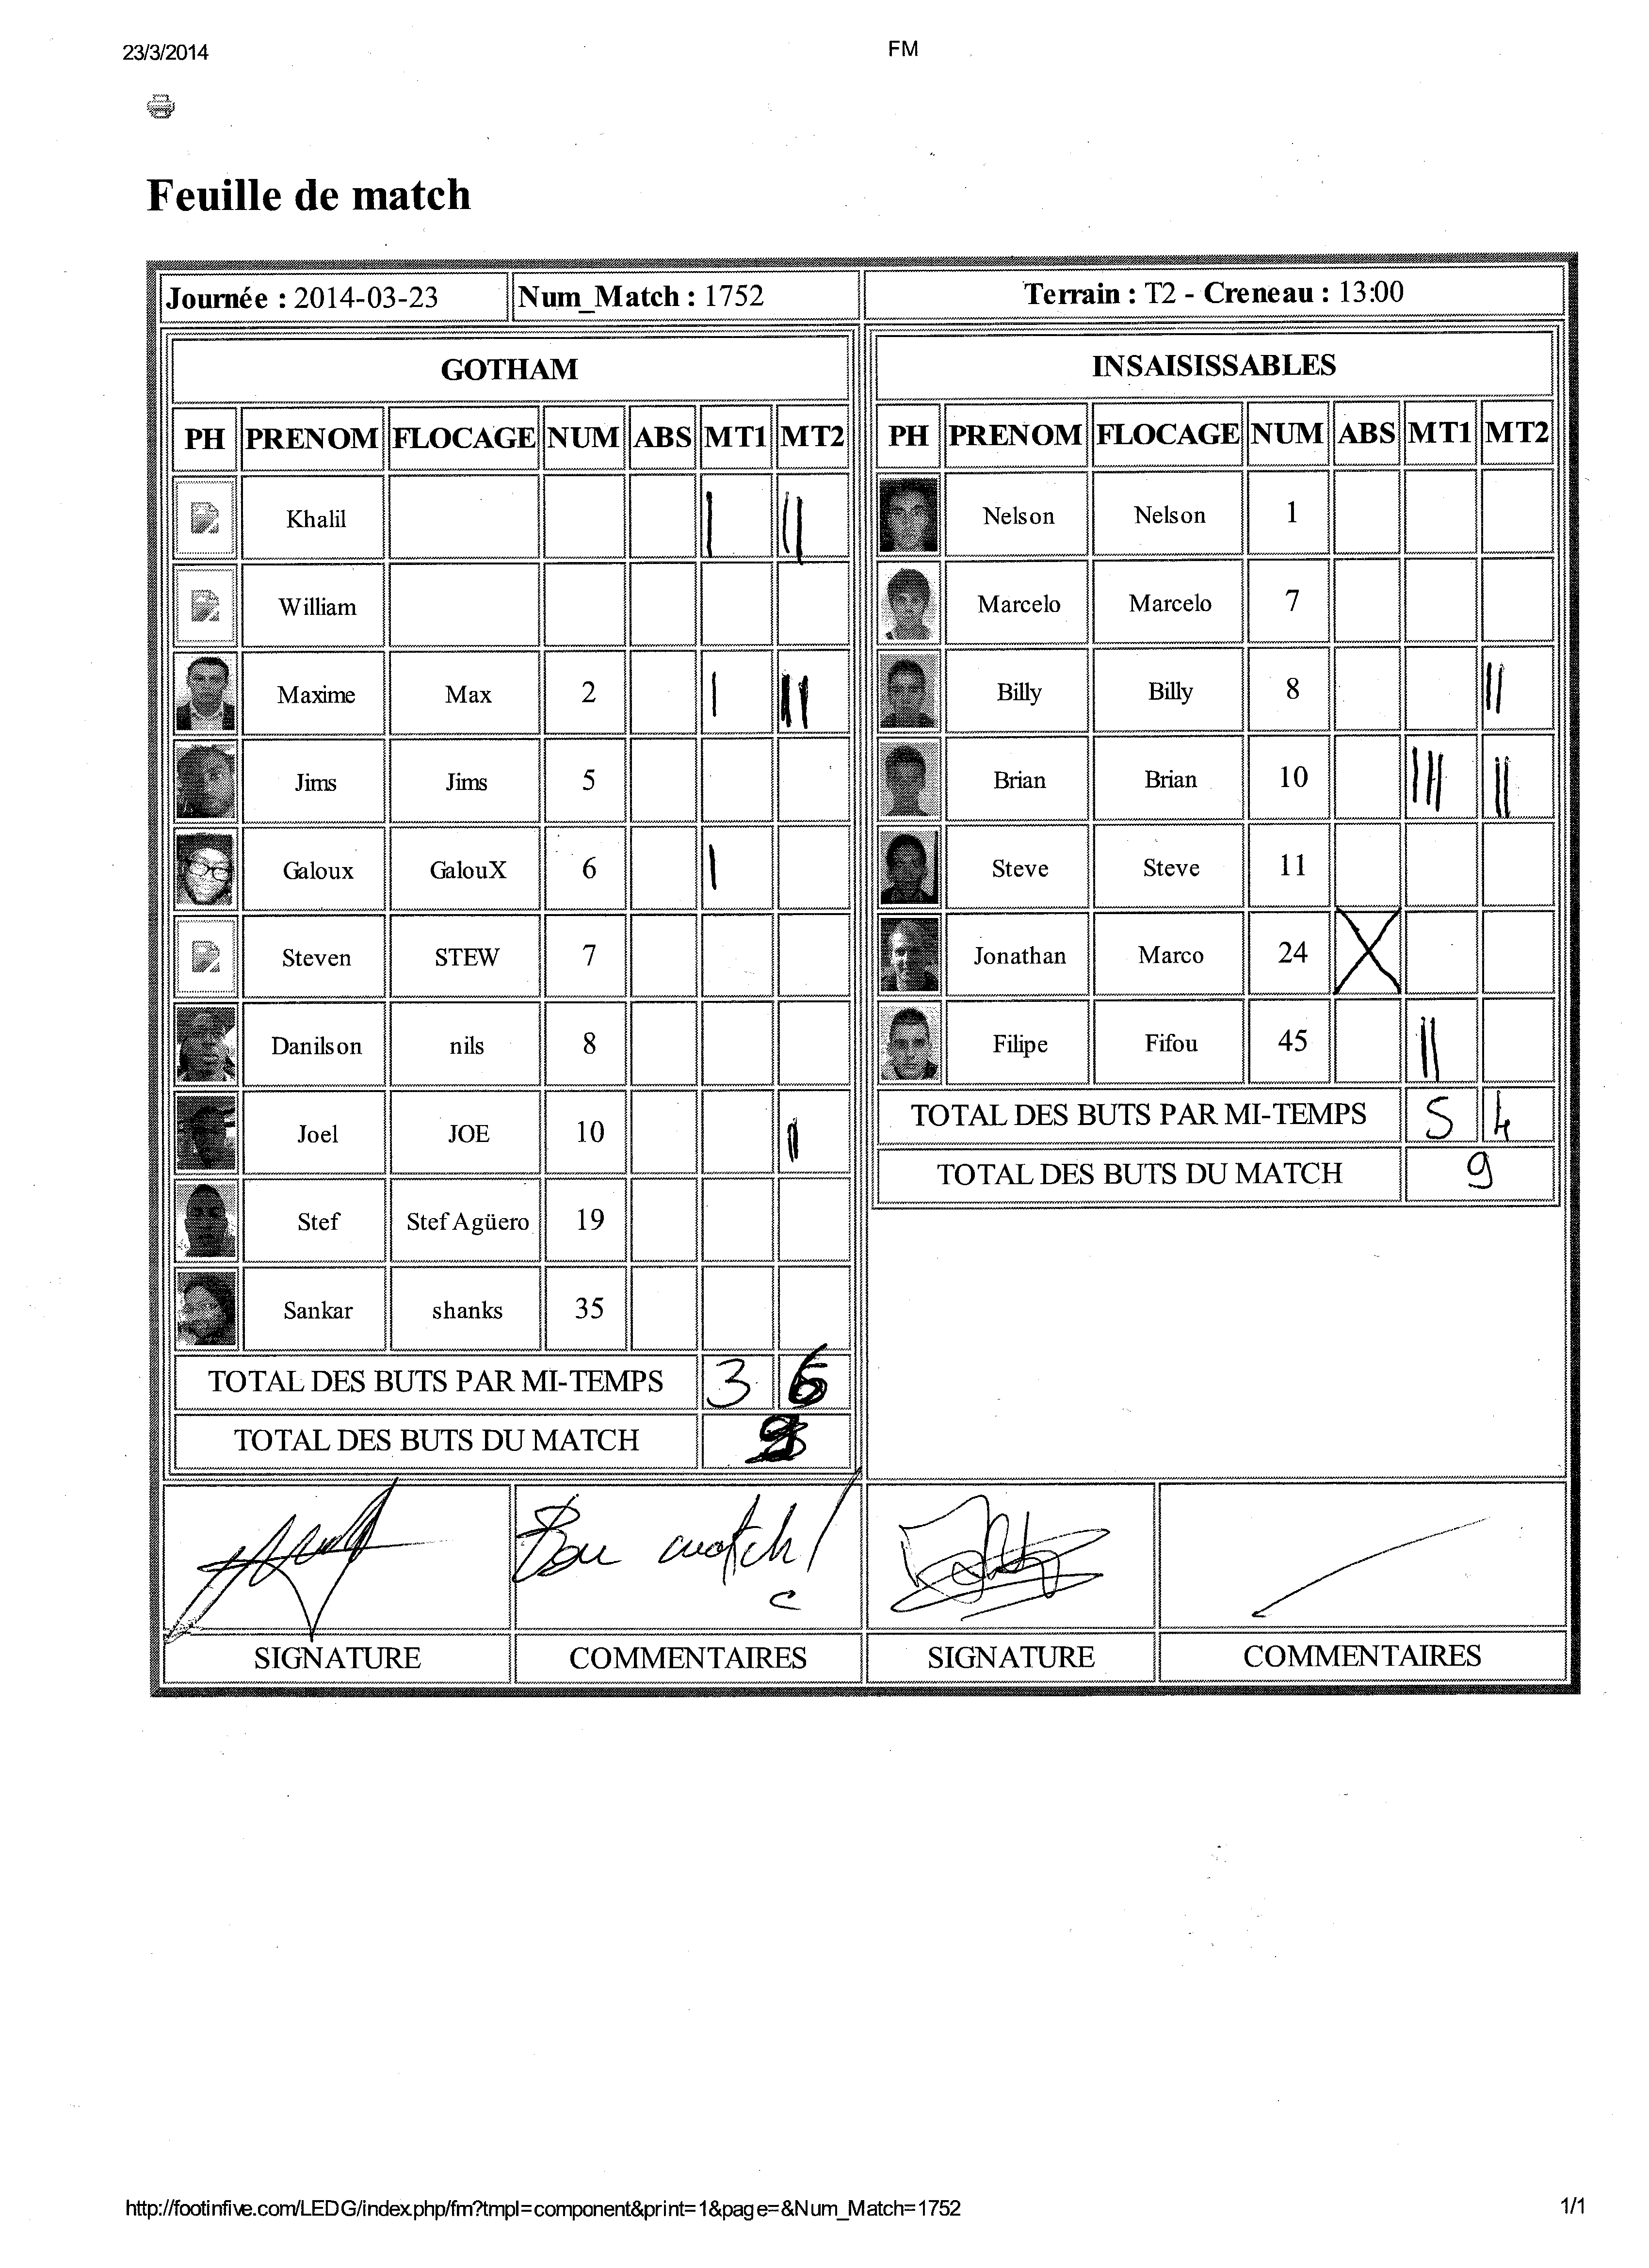 23/3/2014 FM
Feuille de match
Journée : 2014-03-23 Num_Match : 1752 Terrain : T2 - Creneau : 13:00
GOTHAM
PH PRENOM FLOCAGE NUM ABS MT1 MT2
Khalil | ||
William
Maxime Max 2 | ||
Jims Jims 5
Galoux GalouX 6 |
Steven STEW 7
Danilson nils 8
Joel JOE 10 ||
Stef Stef Agüero 19
Sankar shanks 35
TOTAL DES BUTS PAR MI-TEMPS 3
TOTAL DES BUTS DU MATCH
INSAISISSABLES
PH PRENOM FLOCAGE NUM ABS MT1 MT2
Nelson Nelson 1
Marcelo Marcelo 7
Billy Billy 8 ||
Brian Brian 10 ||| ||
Steve Steve 11
Jonathan Marco 24 X
Filipe Fifou 45 ||
TOTAL DES BUTS PAR MI-TEMPS 5 4
TOTAL DES BUTS DU MATCH 9
Bon match !
SIGNATURE COMMENTAIRES SIGNATURE COMMENTAIRES
http://footinfive.com/LEDG/index.php/fm?tmpl=component&print=1&page=&Num_Match=1752 1/1